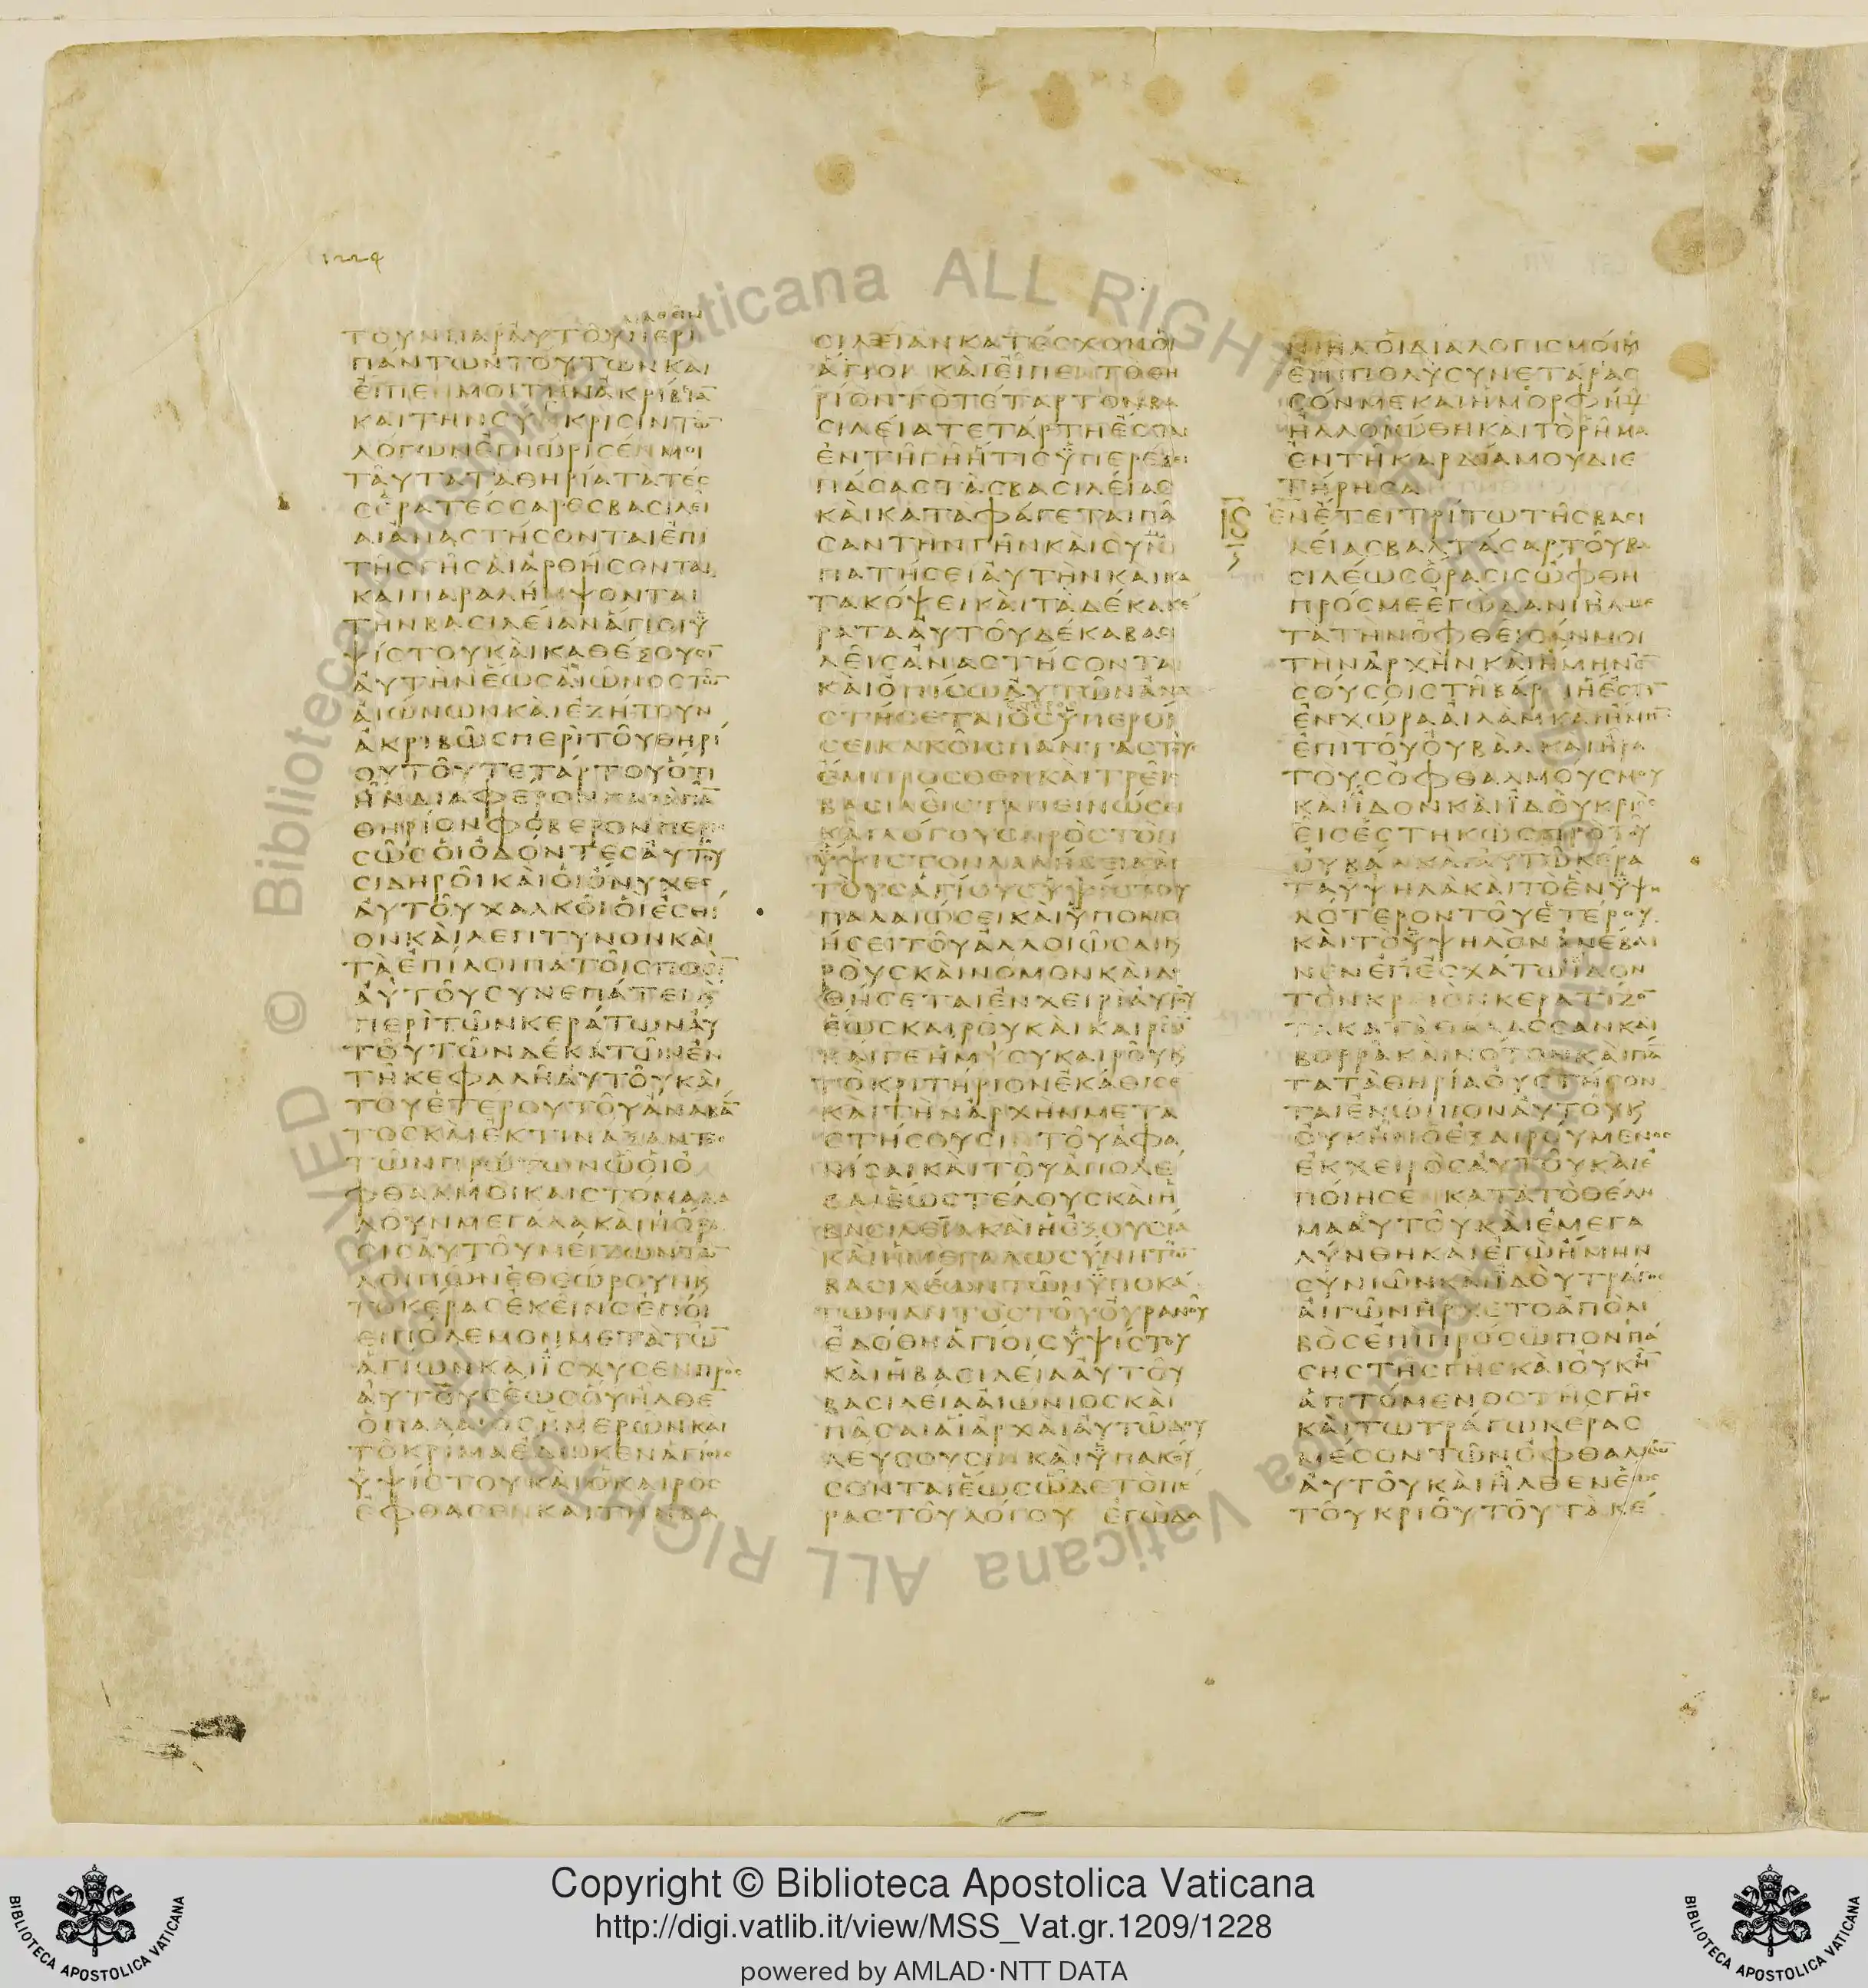 1224
ΜΑΘΕΙΝ
ΤΟΥΝΠΑΡΑΥΤΟΥΠΕΡΙ
ΠΑΝΤΩΝΤΟΥΤΩΝΚΑΙ
ΕΙΠΕΝΜΟΙΤΗΝΑΚΡΙΒΙΑ̅
ΚΑΙΤΗΝΣΥΓΚΡΙΣΙΝΤΩ̅
ΛΟΓΩΝΕΓΝΩΡΙΣΕΝΜΟΙ
ΤΑΥΤΑΤΑΘΗΡΙΑΤΑΤΕΣ
ΣΕΡΑΤΕΣΣΑΡΕΣΒΑΣΙΛΕΙ
ΑΙΑΝΑΣΤΗΣΟΝΤΑΙΕΠΙ
ΤΗΣΓΗΣΑΙΑΡΘΗΣΟΝΤΑΙ
ΚΑΙΠΑΡΑΛΗΜΨΟΝΤΑΙ
ΤΗΝΒΑΣΙΛΕΙΑΝΑΓΙΟΙΥ
ΨΙΣΤΟΥΚΑΙΚΑΘΕΞΟΥΣΙ̅
ΑΥΤΗΝΕΩΣΑΙΩΝΟΣΤΩ̅
ΑΙΩΝΩΝΚΑΙΕΖΗΤΟΥΝ
ΑΚΡΙΒΩΣΠΕΡΙΤΟΥΘΗΡΙ
ΟΥΤΟΥΤΕΤΑΡΤΟΥΟΤΙ
ΗΝΔΙΑΦΕΡΟΝΠΑΡΑΠΑ̅
ΘΗΡΙΟΝΦΟΒΕΡΟΝΠΕΡΙΣ
ΣΩΣΟΙΟΔΟΝΤΕΣΑΥΤΟΥ
ΣΙΔΗΡΟΙΚΑΙΟΙΟΝΥΧΕΣ
ΑΥΤΟΥΧΑΛΚΟΙΟΙΕΣΘΙ
ΟΝΚΑΙΛΕΠΤΥΝΟΝΚΑΙ
ΤΑΕΠΙΛΟΙΠΑΤΟΙΣΠΟΣΙ̅
ΑΥΤΟΥΣΥΝΕΠΑΤΕΙϗ
ΠΕΡΙΤΩΝΚΕΡΑΤΩΝΑΥ
ΤΟΥΤΩΝΔΕΚΑΤΩΝΕΝ
ΤΗΚΕΦΑΛΗΑΥΤΟΥΚΑΙ
ΤΟΥΕΤΕΡΟΥΤΟΥΑΝΑΒΑ̅
ΤΟΣΚΑΙΕΚΤΙΝΑΞΑΝΤΟΣ
ΤΩΝΠΡΩΤΩΝΩΟΙΟ
ΦΘΑΛΜΟΙΚΑΙΣΤΟΜΑΛΑ
ΛΟΥΝΜΕΓΑΛΑΚΑΙΗΟΡΑ
ΣΙΣΑΥΤΟΥΜΕΙΖΩΝΤΩ̅
ΛΟΙΠΩΝΕΘΕΩΡΟΥΝϗ
ΤΟΚΕΡΑΣΕΚΕΙΝΟΕΠΟΙ
ΕΙΠΟΛΕΜΟΝΜΕΤΑΤΩ̅
ΑΓΙΩΝΚΑΙΙΣΧΥΣΕΝΠΡΟΣ
ΑΥΤΟΥΣΕΩΣΟΥΗΛΘΕ̅
ΟΠΑΛΑΙΟΣΗΜΕΡΩΝΚΑΙ
ΤΟΚΡΙΜΑΕΔΩΚΕΝΑΓΙΟΙΣ
ΥΨΙΣΤΟΥΚΑΙΟΚΑΙΡΟΣ
ΕΦΘΑΣΕΝΚΑΙΤΗΝΒΑ
ΣΙΛΕΙΑΝΚΑΤΕΣΧΟΝΟΙ
ΑΓΙΟΙ ΚΑΙΕΙΠΕΝΤΟΘΗ
ΡΙΟΝΤΟΤΕΤΑΡΤΟΝΒΑ
ΣΙΛΕΙΑΤΕΤΑΡΤΗΕΣΤΑΙ
ΕΝΤΗΓΗΗΤΙΣΥΠΕΡΕΞΕΙ
ΠΑΣΑΣΤΑΣΒΑΣΙΛΕΙΑΣ
ΚΑΙΚΑΤΑΦΑΓΕΤΑΙΠΑ
ΣΑΝΤΗΝΓΗΝΚΑΙΣΥΝ
ΠΑΤΗΣΕΙΑΥΤΗΝΚΑΙΚΑ
ΤΑΚΟΨΕΙΚΑΙΤΑΔΕΚΑΚΕ
ΡΑΤΑΑΥΤΟΥΔΕΚΑΒΑΣΙ
ΛΕΙΣΑΝΑΣΤΗΣΟΝΤΑΙ
ΚΑΙΟΠΙΣΩΑΥΤΩΝΑΝΑ
ΣΤΗΣΕΤΑΙΟΣΥΠΕΡΟΙ
ΣΕΙΚΑΚΟΙΣΠΑΝΤΑΣΤΟΥΣ
ΕΜΠΡΟΣΘΕΝΚΑΙΤΡΕΙΣ
ΒΑΣΙΛΕΙΣΤΑΠΕΙΝΩΣΕΙ
ΚΑΙΛΟΓΟΥΣΠΡΟΣΤΟΝ
ΥΨΙΣΤΟΝΛΑΛΗΣΕΙΚΑΙ
ΤΟΥΣΑΓΙΟΥΣΥΨΙΣΤΟΥ
ΠΑΛΑΙΩΣΕΙΚΑΙΥΠΟΝΟ
ΗΣΕΙΤΟΥΑΛΛΟΙΩΣΑΙΚΑΙ
ΡΟΥΣΚΑΙΝΟΜΟΝΚΑΙΔΟ
ΘΗΣΕΤΑΙΕΝΧΕΙΡΙΑΥΤΟΥ
ΕΩΣΚΑΙΡΟΥΚΑΙΚΑΙΡΩ̅
ΚΑΙΓΕΗΜΥΣΥΚΑΙΡΟΥϗ
ΤΟΚΡΙΤΗΡΙΟΝΕΚΑΘΙΣΕ
ΚΑΙΤΗΝΑΡΧΗΝΜΕΤΑ
ΣΤΗΣΟΥΣΙΝΤΟΥΑΦΑ
ΝΙΣΑΙΚΑΙΤΟΥΑΠΟΛΕ
ΣΑΙΕΩΣΤΕΛΟΥΣΚΑΙΗ
ΒΑΣΙΛΕΙΑΚΑΙΗΕΞΟΥΣΙΑ
ΚΑΙΗΜΕΓΑΛΩΣΥΝΗΤΩ̅
ΒΑΣΙΛΕΩΝΤΩΝΥΠΟΚΑ
ΤΩΠΑΝΤΟΣΤΟΥΟΥΡΑΝΟΥ
ΕΔΟΘΗΑΓΙΟΙΣΥΨΙΣΤΟΥ
ΚΑΙΗΒΑΣΙΛΕΙΑΑΥΤΟΥ
ΒΑΣΙΛΕΙΑΑΙΩΝΙΟΣΚΑΙ
ΠΑΣΑΙΑΙΑΡΧΑΙΑΥΤΩΔΟΥ
ΛΕΥΣΟΥΣΙΝΚΑΙΥΠΑΚΟΥ
ΣΟΝΤΑΙΕΩΣΩΔΕΤΟΠΕ
ΡΑΣΤΟΥΛΟΓΟΥ ΕΓΩΔΑ
ΝΙΗΛΟΙΔΙΑΛΟΓΙΣΜΟΙΜΟΥ
ΕΠΙΠΟΛΥΣΥΝΕΤΑΡΑΣ
ΣΟΝΜΕΚΑΙΗΜΟΡΦΗΜΟΥ
ΗΛΛΟΙΩΘΗΚΑΙΤΟΡΗΜΑ
ΕΝΤΗΚΑΡΔΙΑΜΟΥΔΙΕ
ΤΗΡΗΣΑ
ΙϚ
ΕΝΕΤΕΙΤΡΙΤΩΤΗΣΒΑΣΙ
ΛΕΙΑΣΒΑΛΤΑΣΑΡΤΟΥΒΑ
ΣΙΛΕΩΣΟΡΑΣΙΣΩΦΘΗ
ΠΡΟΣΜΕΕΓΩΔΑΝΙΗΛΜΕ
ΤΑΤΗΝΟΦΘΕΙΣΑΝΜΟΙ
ΤΗΝΑΡΧΗΝΚΑΙΗΜΗΝΕ̅
ΣΟΥΣΟΙΣΤΗΒΑΡΕΙΗΕΣΤΙ̅
ΕΝΧΩΡΑΑΙΛΑΜΚΑΙΗΜΗ̅
ΕΠΙΤΟΥΟΥΒΑΛΚΑΙΗΡΑ
ΤΟΥΣΟΦΘΑΛΜΟΥΣΜΟΥ
ΚΑΙΙΔΟΝΚΑΙΙΔΟΥΚΡΙΟΣ
ΕΙΣΕΣΤΗΚΩΣΠΡΟΤΟΥ
ΟΥΒΑΛΚΑΙΑΥΤΩΚΕΡΑ
ΤΑΥΨΗΛΑΚΑΙΤΟΕΝΥΨΗ
ΛΟΤΕΡΟΝΤΟΥΕΤΕΡΟΥ
ΚΑΙΤΟΥΨΗΛΟΝΑΝΕΒΑΙ
ΝΕΝΕΠΕΣΧΑΤΩΙΔΟΝ
ΤΟΝΚΡΕΙΟΝΚΕΡΑΤΙΖΟ̅
ΤΑΚΑΤΑΘΑΛΑΣΣΑΝΚΑΙ
ΒΟΡΡΑΚΑΙΝΟΤΟΝΚΑΙΠΑ̅
ΤΑΤΑΘΗΡΙΑΟΥΣΤΗΣΟΝ
ΤΑΙΕΝΩΠΙΟΝΑΥΤΟΥϗ
ΟΥΚΗΝΟΕΞΑΙΡΟΥΜΕΝΟΣ
ΕΚΧΕΙΡΟΣΑΥΤΟΥΚΑΙΕ
ΠΟΙΗΣΕΝΚΑΤΑΤΟΘΕΛΗ
ΜΑΑΥΤΟΥΚΑΙΕΜΕΓΑ
ΛΥΝΘΗΚΑΙΕΓΩΗΜΗΝ
ΣΥΝΙΩΝΚΑΙΙΔΟΥΤΡΑΓΟΣ
ΑΙΓΩΝΗΡΧΕΤΟΑΠΟΛΙ
ΒΟΣΕΠΙΠΡΟΣΩΠΟΝΠΑ
ΣΗΣΤΗΣΓΗΣΚΑΙΟΥΚΗ̅
ΑΠΤΟΜΕΝΟΣΤΗΣΓΗΣ
ΚΑΙΤΩΤΡΑΓΩΚΕΡΑΣ
ΜΕΣΟΝΤΩΝΟΦΘΑΛΜΩ̅
ΑΥΤΟΥΚΑΙΗΛΘΕΝΕΩΣ
ΤΟΥΚΡΙΟΥΤΟΥΤΑΚΕ
© Biblioteca Apostolica Vaticana ALL RIGHTS RESERVED
Copyright © Biblioteca Apostolica Vaticana
http://digi.vatlib.it/view/MSS_Vat.gr.1209/1228
powered by AMLAD·NTT DATA
BIBLIOTECA APOSTOLICA VATICANA
BIBLIOTECA APOSTOLICA VATICANA